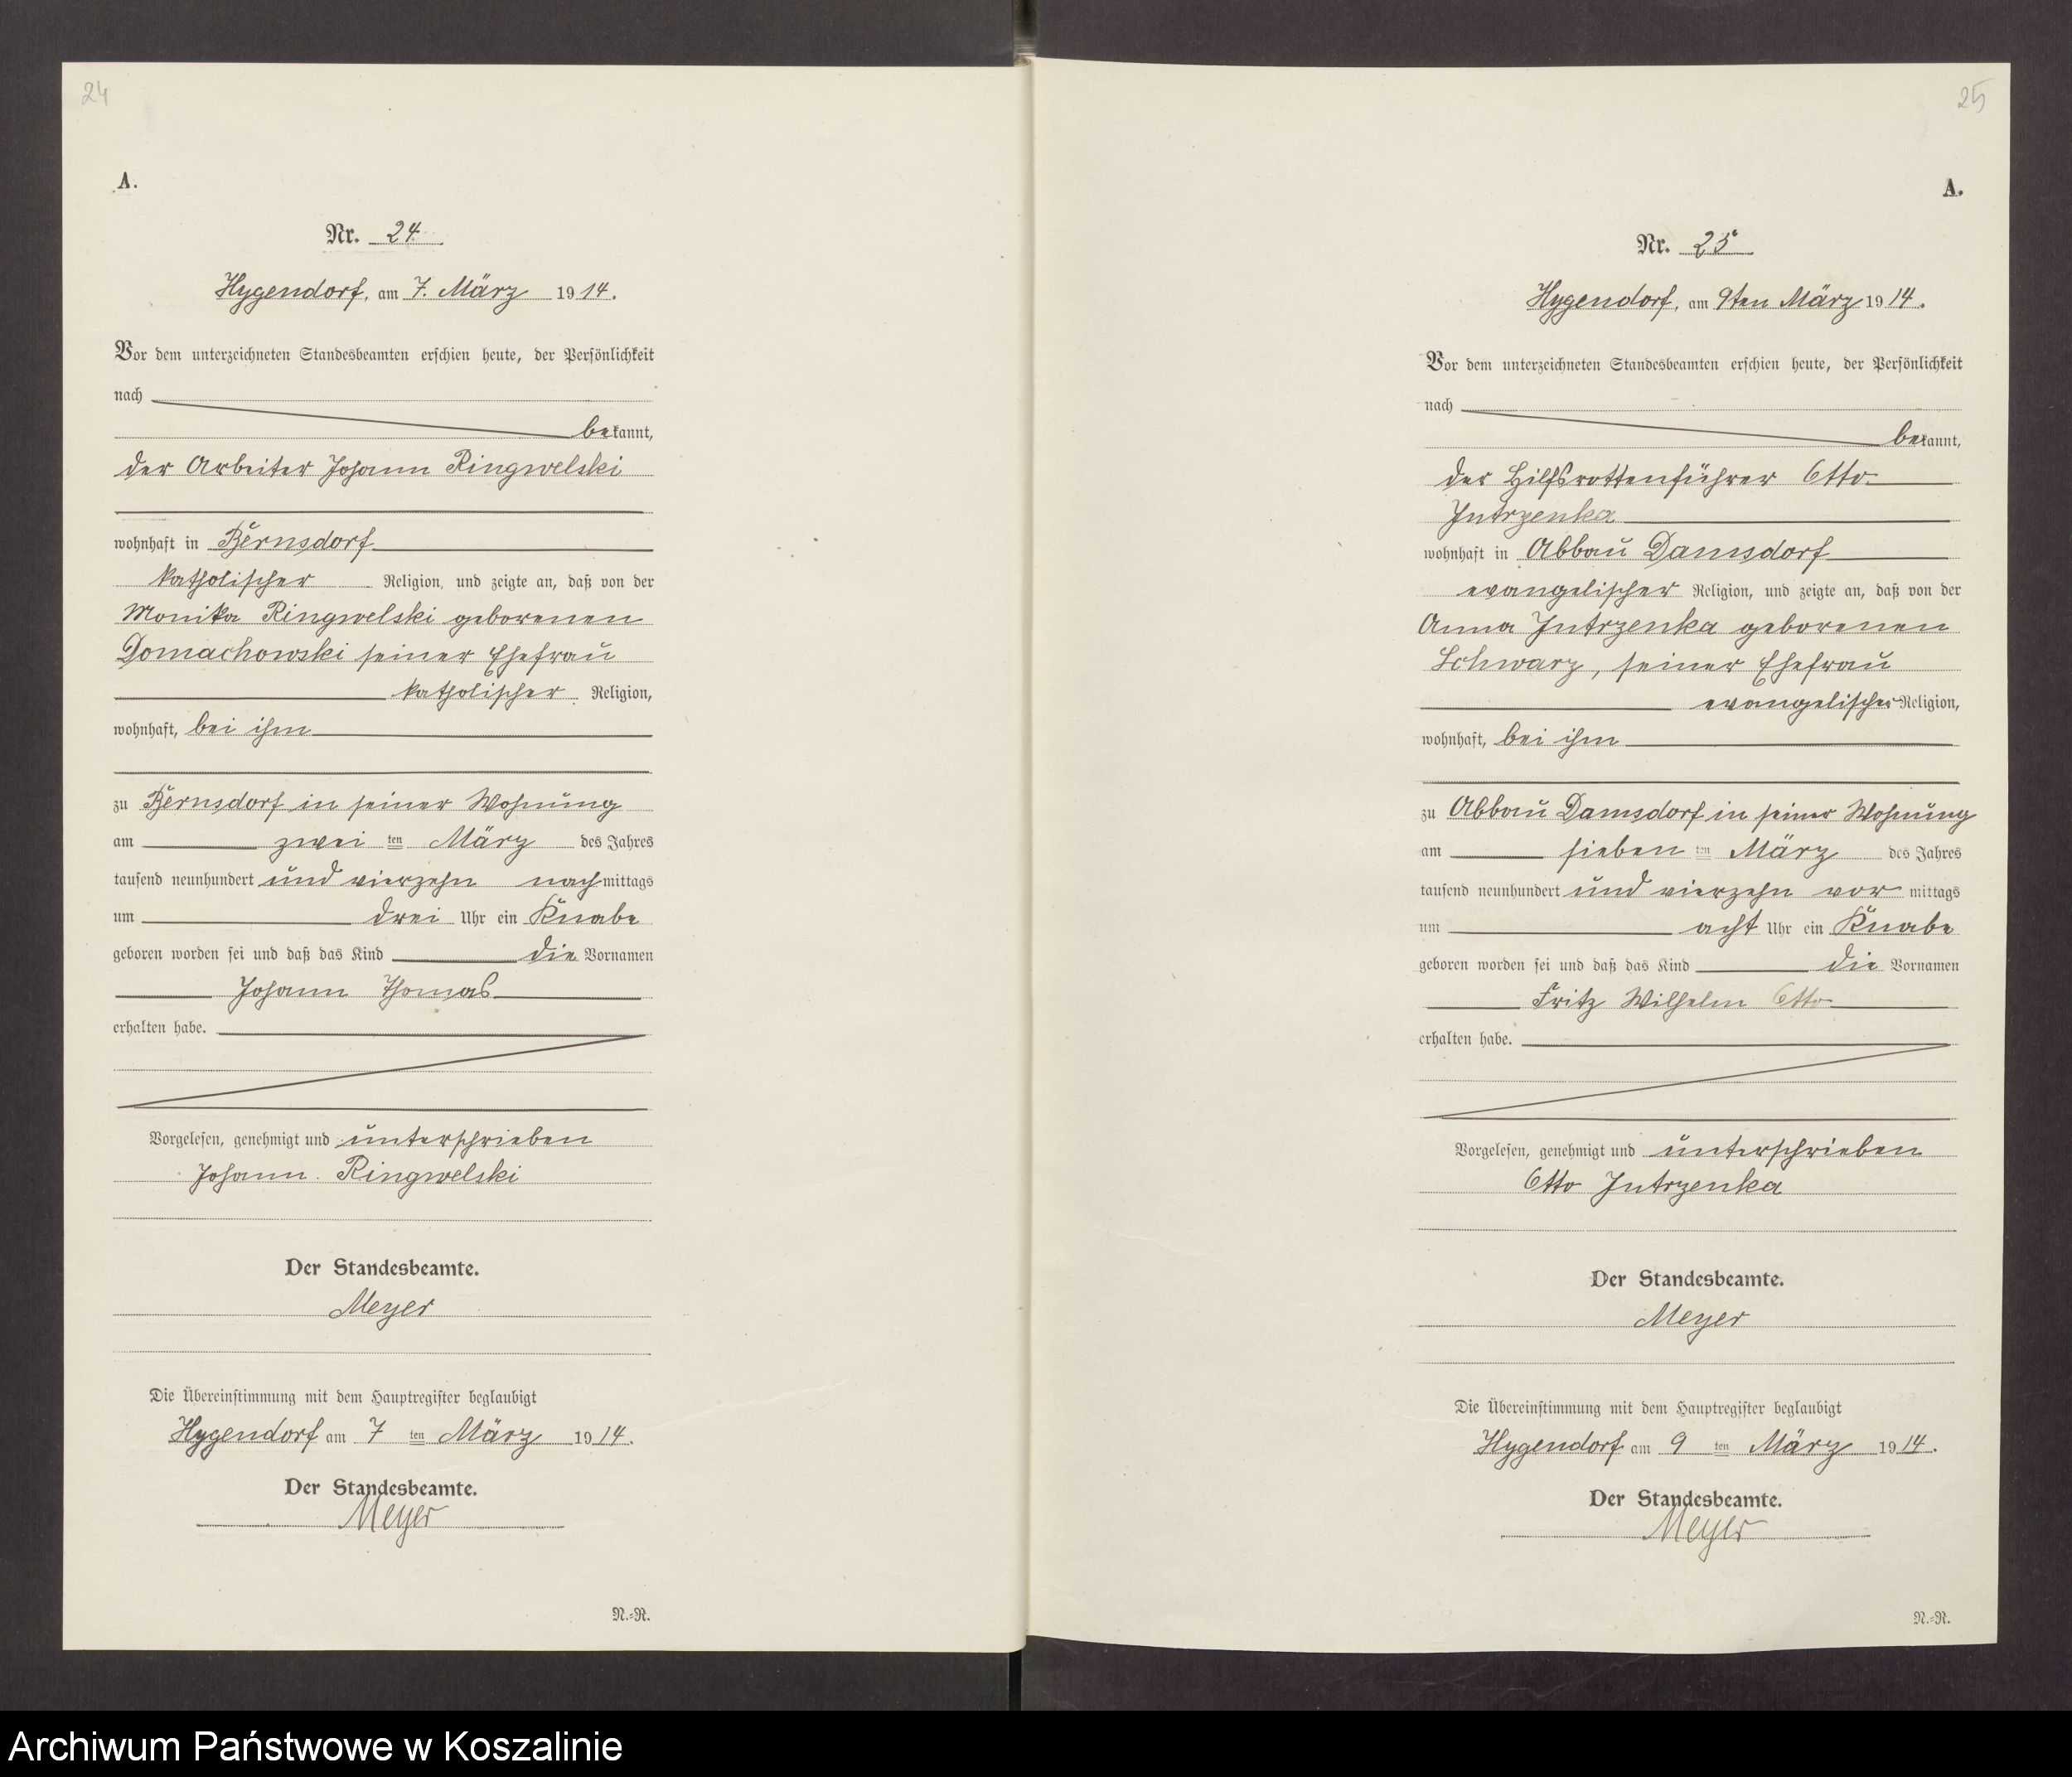 24
A.
Nr. 24
Hygendorf, am 7. März 1914.
Vor dem unterzeichneten Standesbeamten erschien heute, der Persönlichkeit
nach
bekannt,
der Arbeiter Johann Ringwelski
wohnhaft in Bernsdorf
katholischer Religion, und zeigte an, daß von der
Monika Ringwelski geborenen
Domachowski seiner Ehefrau
katholischer Religion,
wohnhaft, bei ihm
zu Bernsdorf in seiner Wohnung
am zwei ten März des Jahres
tausend neunhundert und vierzehn nachmittags
um drei Uhr ein Knabe
geboren worden sei und daß das Kind die Vornamen
Johann Thomas
erhalten habe.
Vorgelesen, genehmigt und unterschrieben
Johann Ringwelski
Der Standesbeamte.
Meyer
Die Übereinstimmung mit dem Hauptregister beglaubigt
Hygendorf am 7 ten März 1914.
Der Standesbeamte.
Meyer
N.=R.
25
A.
Nr. 25
Hygendorf, am 9ten März 1914.
Vor dem unterzeichneten Standesbeamten erschien heute, der Persönlichkeit
nach
bekannt,
der Hilfsrottenführer Otto
Jutrzenka
wohnhaft in Abbau Damsdorf
evangelischer Religion, und zeigte an, daß von der
Anna Jutrzenka geborenen
Schwarz, seiner Ehefrau
evangelischer Religion,
wohnhaft, bei ihm
zu Abbau Damsdorf in seiner Wohnung
am sieben ten März des Jahres
tausend neunhundert und vierzehn vor mittags
um acht Uhr ein Knabe
geboren worden sei und daß das Kind die Vornamen
Fritz Wilhelm Otto
erhalten habe.
Vorgelesen, genehmigt und unterschrieben
Otto Jutrzenka
Der Standesbeamte.
Meyer
Die Übereinstimmung mit dem Hauptregister beglaubigt
Hygendorf am 9 ten März 1914.
Der Standesbeamte.
Meyer
N.=R.
Archiwum Państwowe w Koszalinie